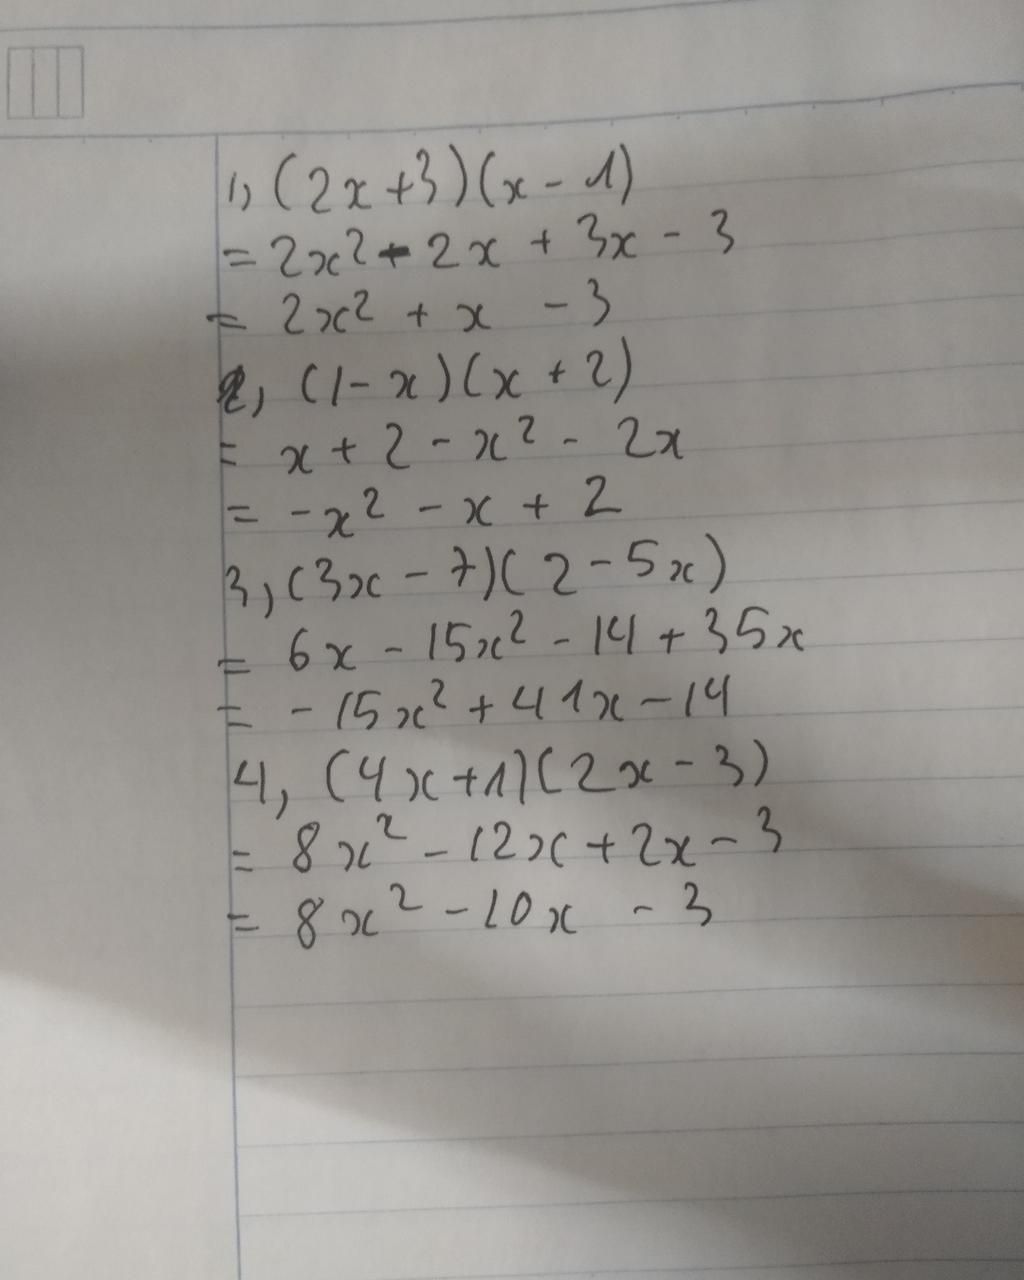 1, (2x+3)(x-1)
= 2x² - 2x + 3x - 3
= 2x² + x - 3
2, (1-x)(x+2)
= x + 2 - x² - 2x
= -x² - x + 2
3, (3x-7)(2-5x)
= 6x - 15x² - 14 + 35x
= -15x² + 41x - 14
4, (4x+1)(2x-3)
= 8x² - 12x + 2x - 3
= 8x² - 10x - 3